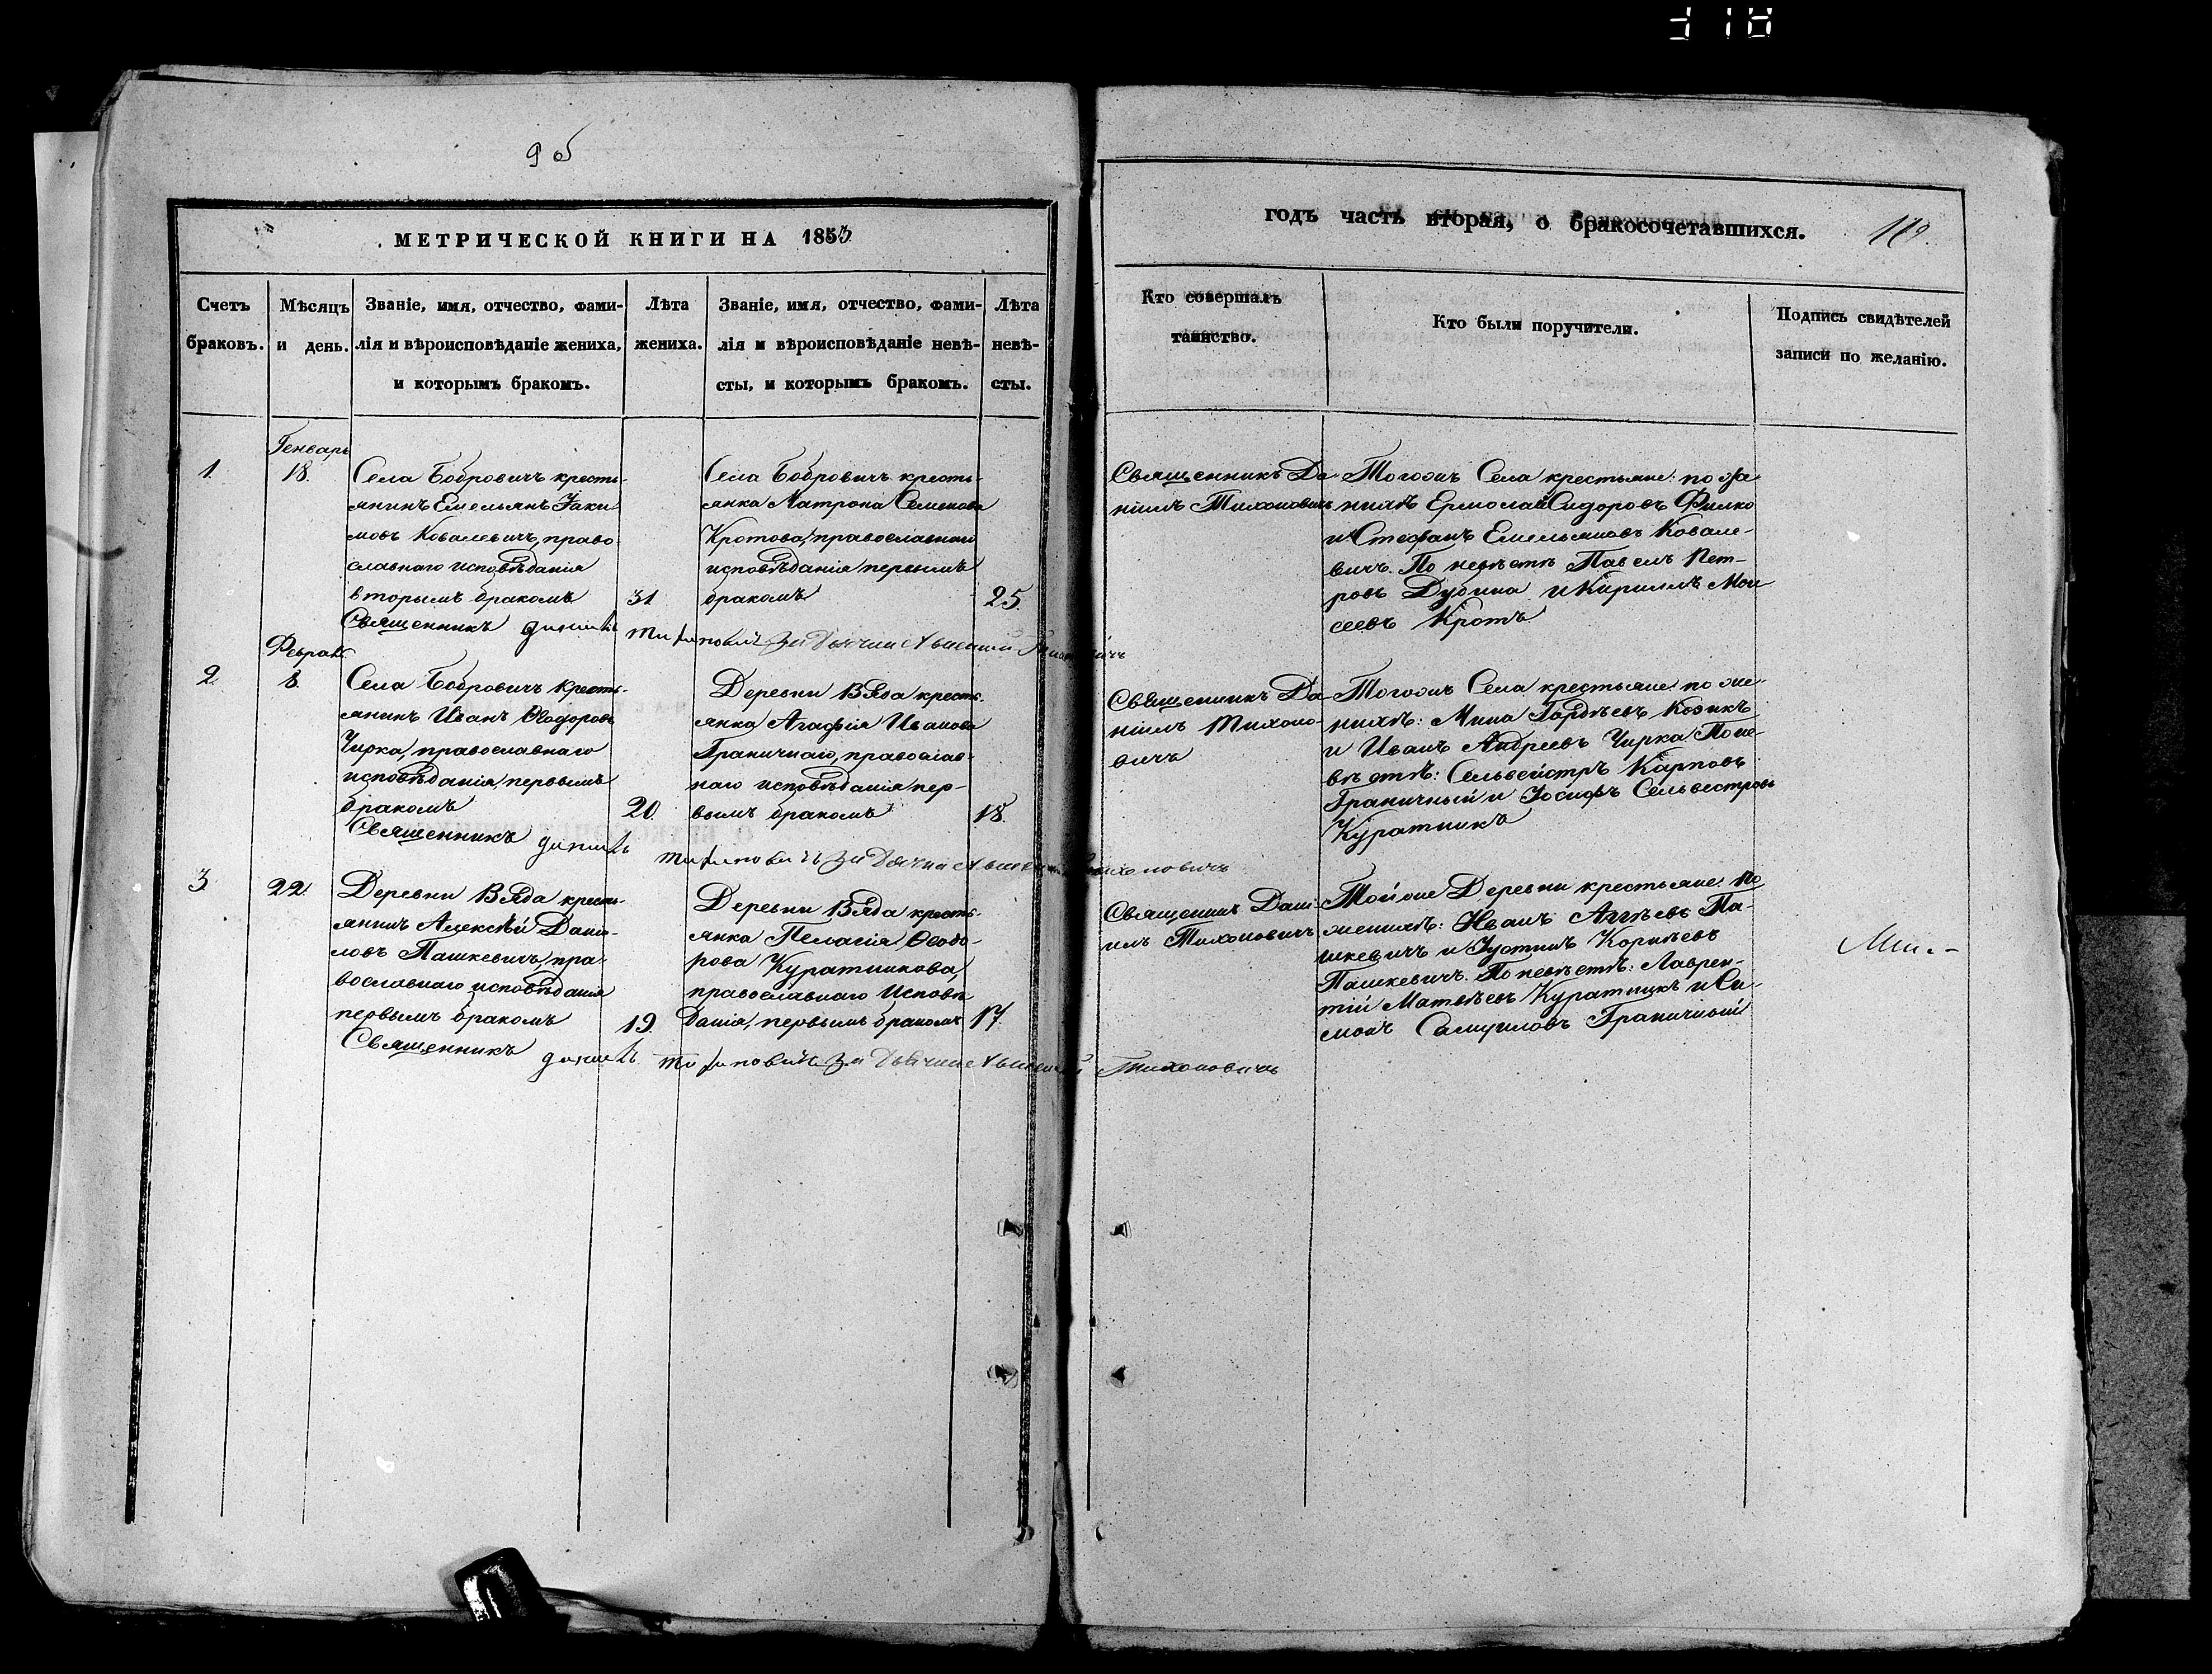 95
МЕТРИЧЕСКОЙ КНИГИ НА 1853
Счетъ браковъ.
Мѣсяцъ и день.
Званіе, имя, отчество, фами-
лія и вѣроисповѣданіе жениха,
и которымъ бракомъ.
Лѣта жениха.
Званіе, имя, отчество, фами-
лія и вѣроисповѣданіе невѣ-
сты, и которымъ бракомъ.
Лѣта невѣ-
сты.
годъ часть вторая, о бракосочетавшихся.
Кто совершалъ
таинство.
Кто были поручители.
Подпись свидѣтелей
записи по желанію.
1.
Генварь
18.
Села Бобровичъ кресть-
янинъ Емельянъ Іаки
мовъ Ковалевичъ, право-
славнаго исповѣданія
вторымъ бракомъ
31
Села Бобровичъ кресть-
янка Матрона Семенова
Кротова, православнаго
исповѣданія первымъ
бракомъ
25.
Священникъ Да-
ніилъ Тихоновичъ
Тогожъ Села крестьяне: по же-
нихѣ Ермолай Сидоровъ Филко
и Стефанъ Емельяновъ Ковале-
вичъ. По невѣстѣ Павелъ Пет-
ровъ Дубина и Кириллъ Мои
сеевъ Кротъ
Священникъ
2.
Феврал.
8.
Села Бобровичъ кресть-
янинъ Иванъ Ѳеодоровъ
Чирка, православнаго
исповѣданія, первымъ
бракомъ
20.
Деревни Вяда кресть-
янка Агафія Иванова
Граничнаго, православ-
наго исповѣданія пер-
вымъ бракомъ
18.
Священникъ Да-
ніилъ Тихоно-
вичъ
Тогожъ Села крестьяне: по же-
нихѣ: Мина Гордѣевъ Козикъ
и Иванъ Андреевъ Чирка По не-
вѣстѣ: Сельвестръ Карповъ
Граничный и Іосифъ Сельвестровъ
Куратникъ
Священникъ
Тихоновичъ
3.
22.
Деревни Вяда кресть-
янинъ Алексѣй Дани-
ловъ Пашкевичъ, пра-
вославнаго исповѣданія
первымъ бракомъ
19.
Деревни Вяда кресть-
янка Пелагія Ѳеодо-
рова Куратникова,
православнаго Исповѣ
данія, первымъ бракомъ
17.
Священникъ Дані-
илъ Тихоновичъ
Тойже Деревни крестьяне: по
женихѣ: Иванъ Аггѣевъ Па-
шкевичъ и Іустинъ Корнѣевъ
Пашкевичъ. По невѣстѣ: Лаврен-
тій Матвѣевъ Куратникъ и Си-
монъ Самуиловъ Граничный
Священникъ
Тихоновичъ